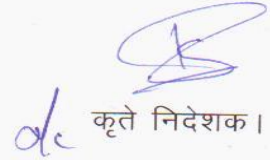 कृते निदेशक।